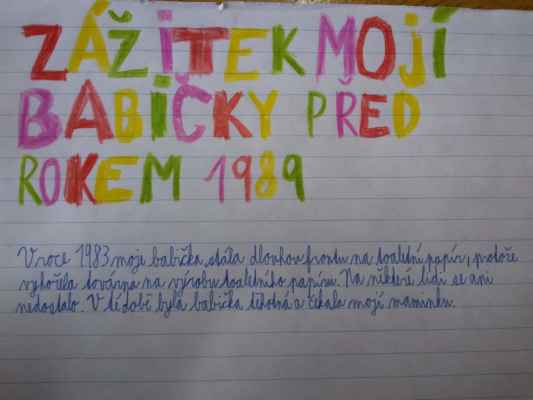 ZÁŽITEK MOJÍ
BABIČKY PŘED
ROKEM 1989
V roce 1983 moje babička stála dlouhou frontu na toaletní papír, protože
vyhořela továrna na výrobu toaletního papíru. Na některé lidi se ani
nedostalo. V té době byla babička těhotná a čekala moji maminku.